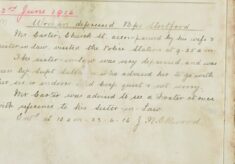 2nd June 1914
Woman depressed, Bps Stortford
Mr Carter, Church St. accompanied by his wife &
sister in law visited the Police Station at 9.25 a.m.
The sister in law was very depressed, and was
seen by Supt who advised her to go with
her sis in and keep quiet & not worry.
Mr Carter was advised to see a Doctor at once
with reference to his Sister in Law.
at 10 am